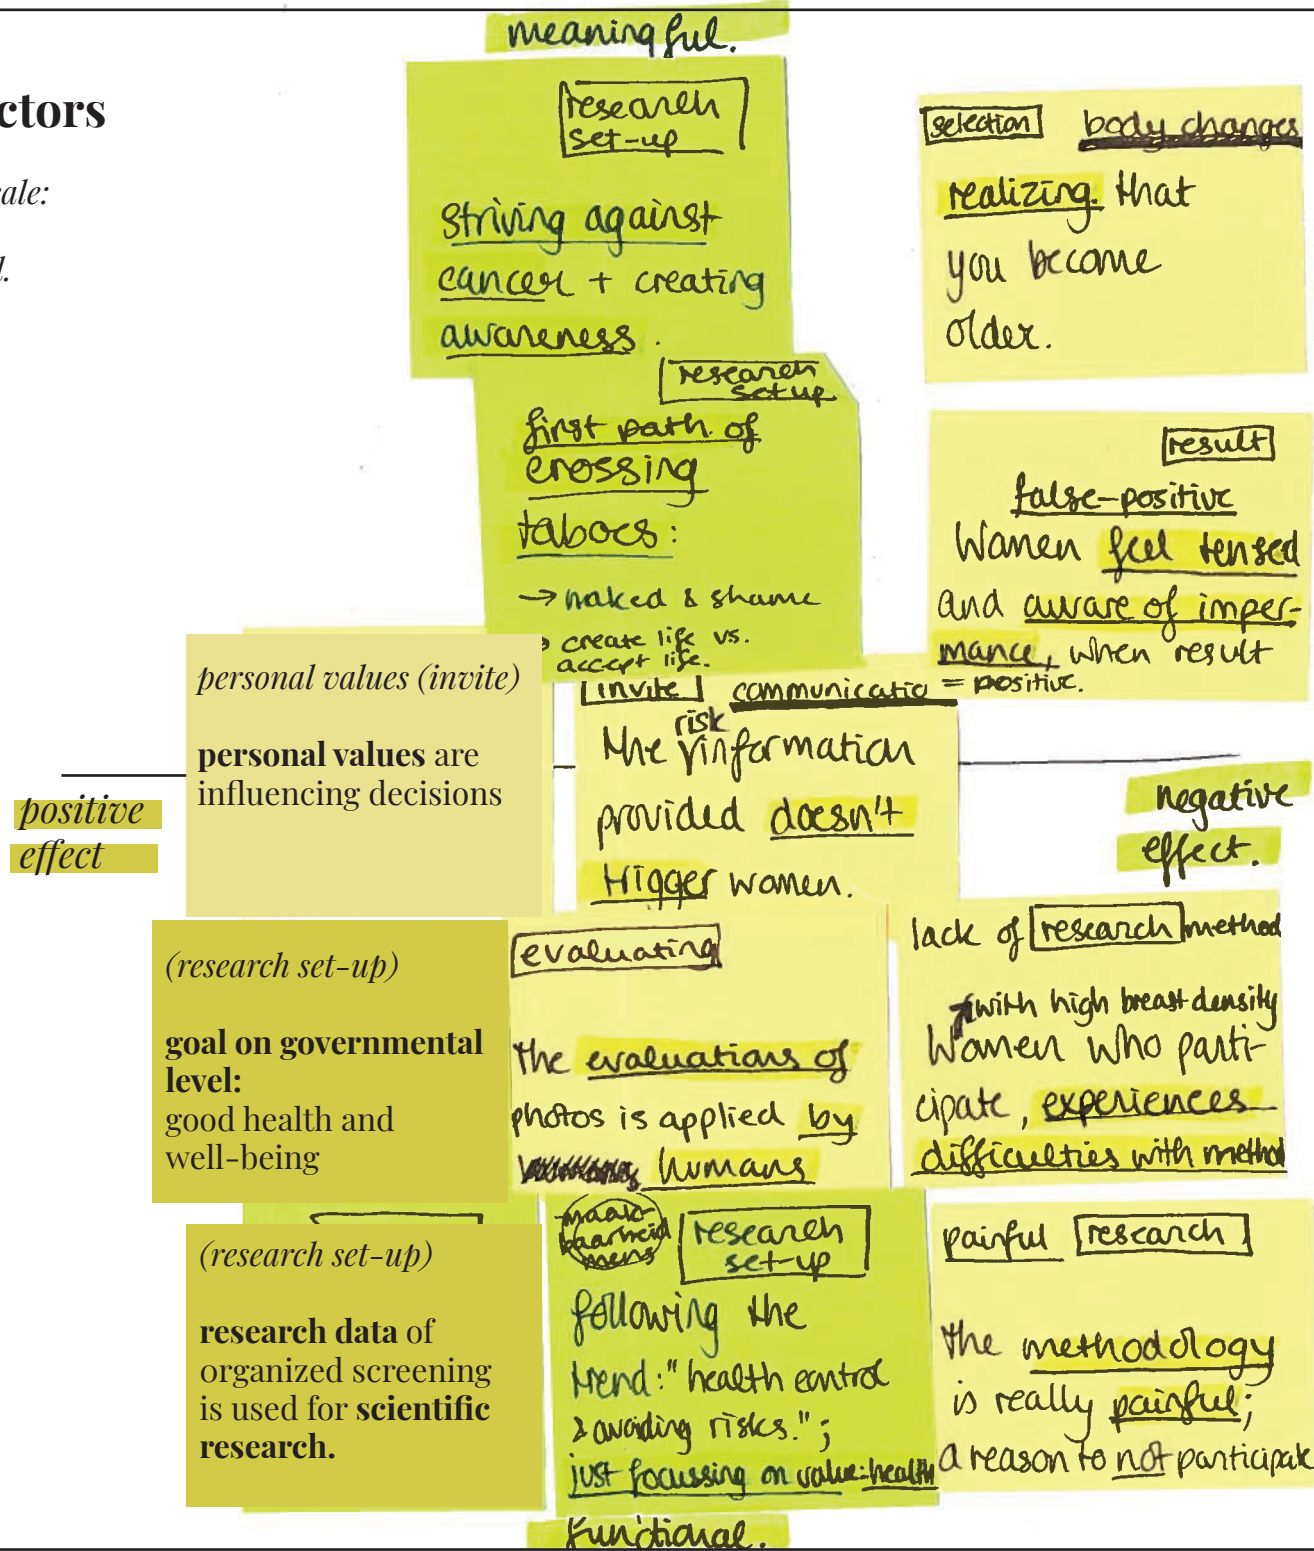 meaningful.
ctors
ale:
l.
research
set-up
striving against
cancer + creating
awareness.
selection body changes
realizing that
you become
older.
research
set up
first path of
crossing
taboes:
→ naked & shame
→ create life vs.
accept life.
result
false-positive
Women feel tensed
and aware of imper-
mance, when result
= positive.
personal values (invite)
personal values are
influencing decisions
invite communicatio
risk
the information
provided doesn't
trigger women.
positive
effect
negative
effect.
(research set-up)
goal on governmental
level:
good health and
well-being
evaluating
the evaluations of
photos is applied by
humans
lack of research method
with high breast density
Women who parti-
cipate, experiences
difficulties with method
(research set-up)
research data of
organized screening
is used for scientific
research.
maak-
baarheid
mens
research
set-up
following the
trend: "health control
& avoiding risks.";
just focussing on value: health
painful research
the methodology
is really painful;
a reason to not participate
functional.